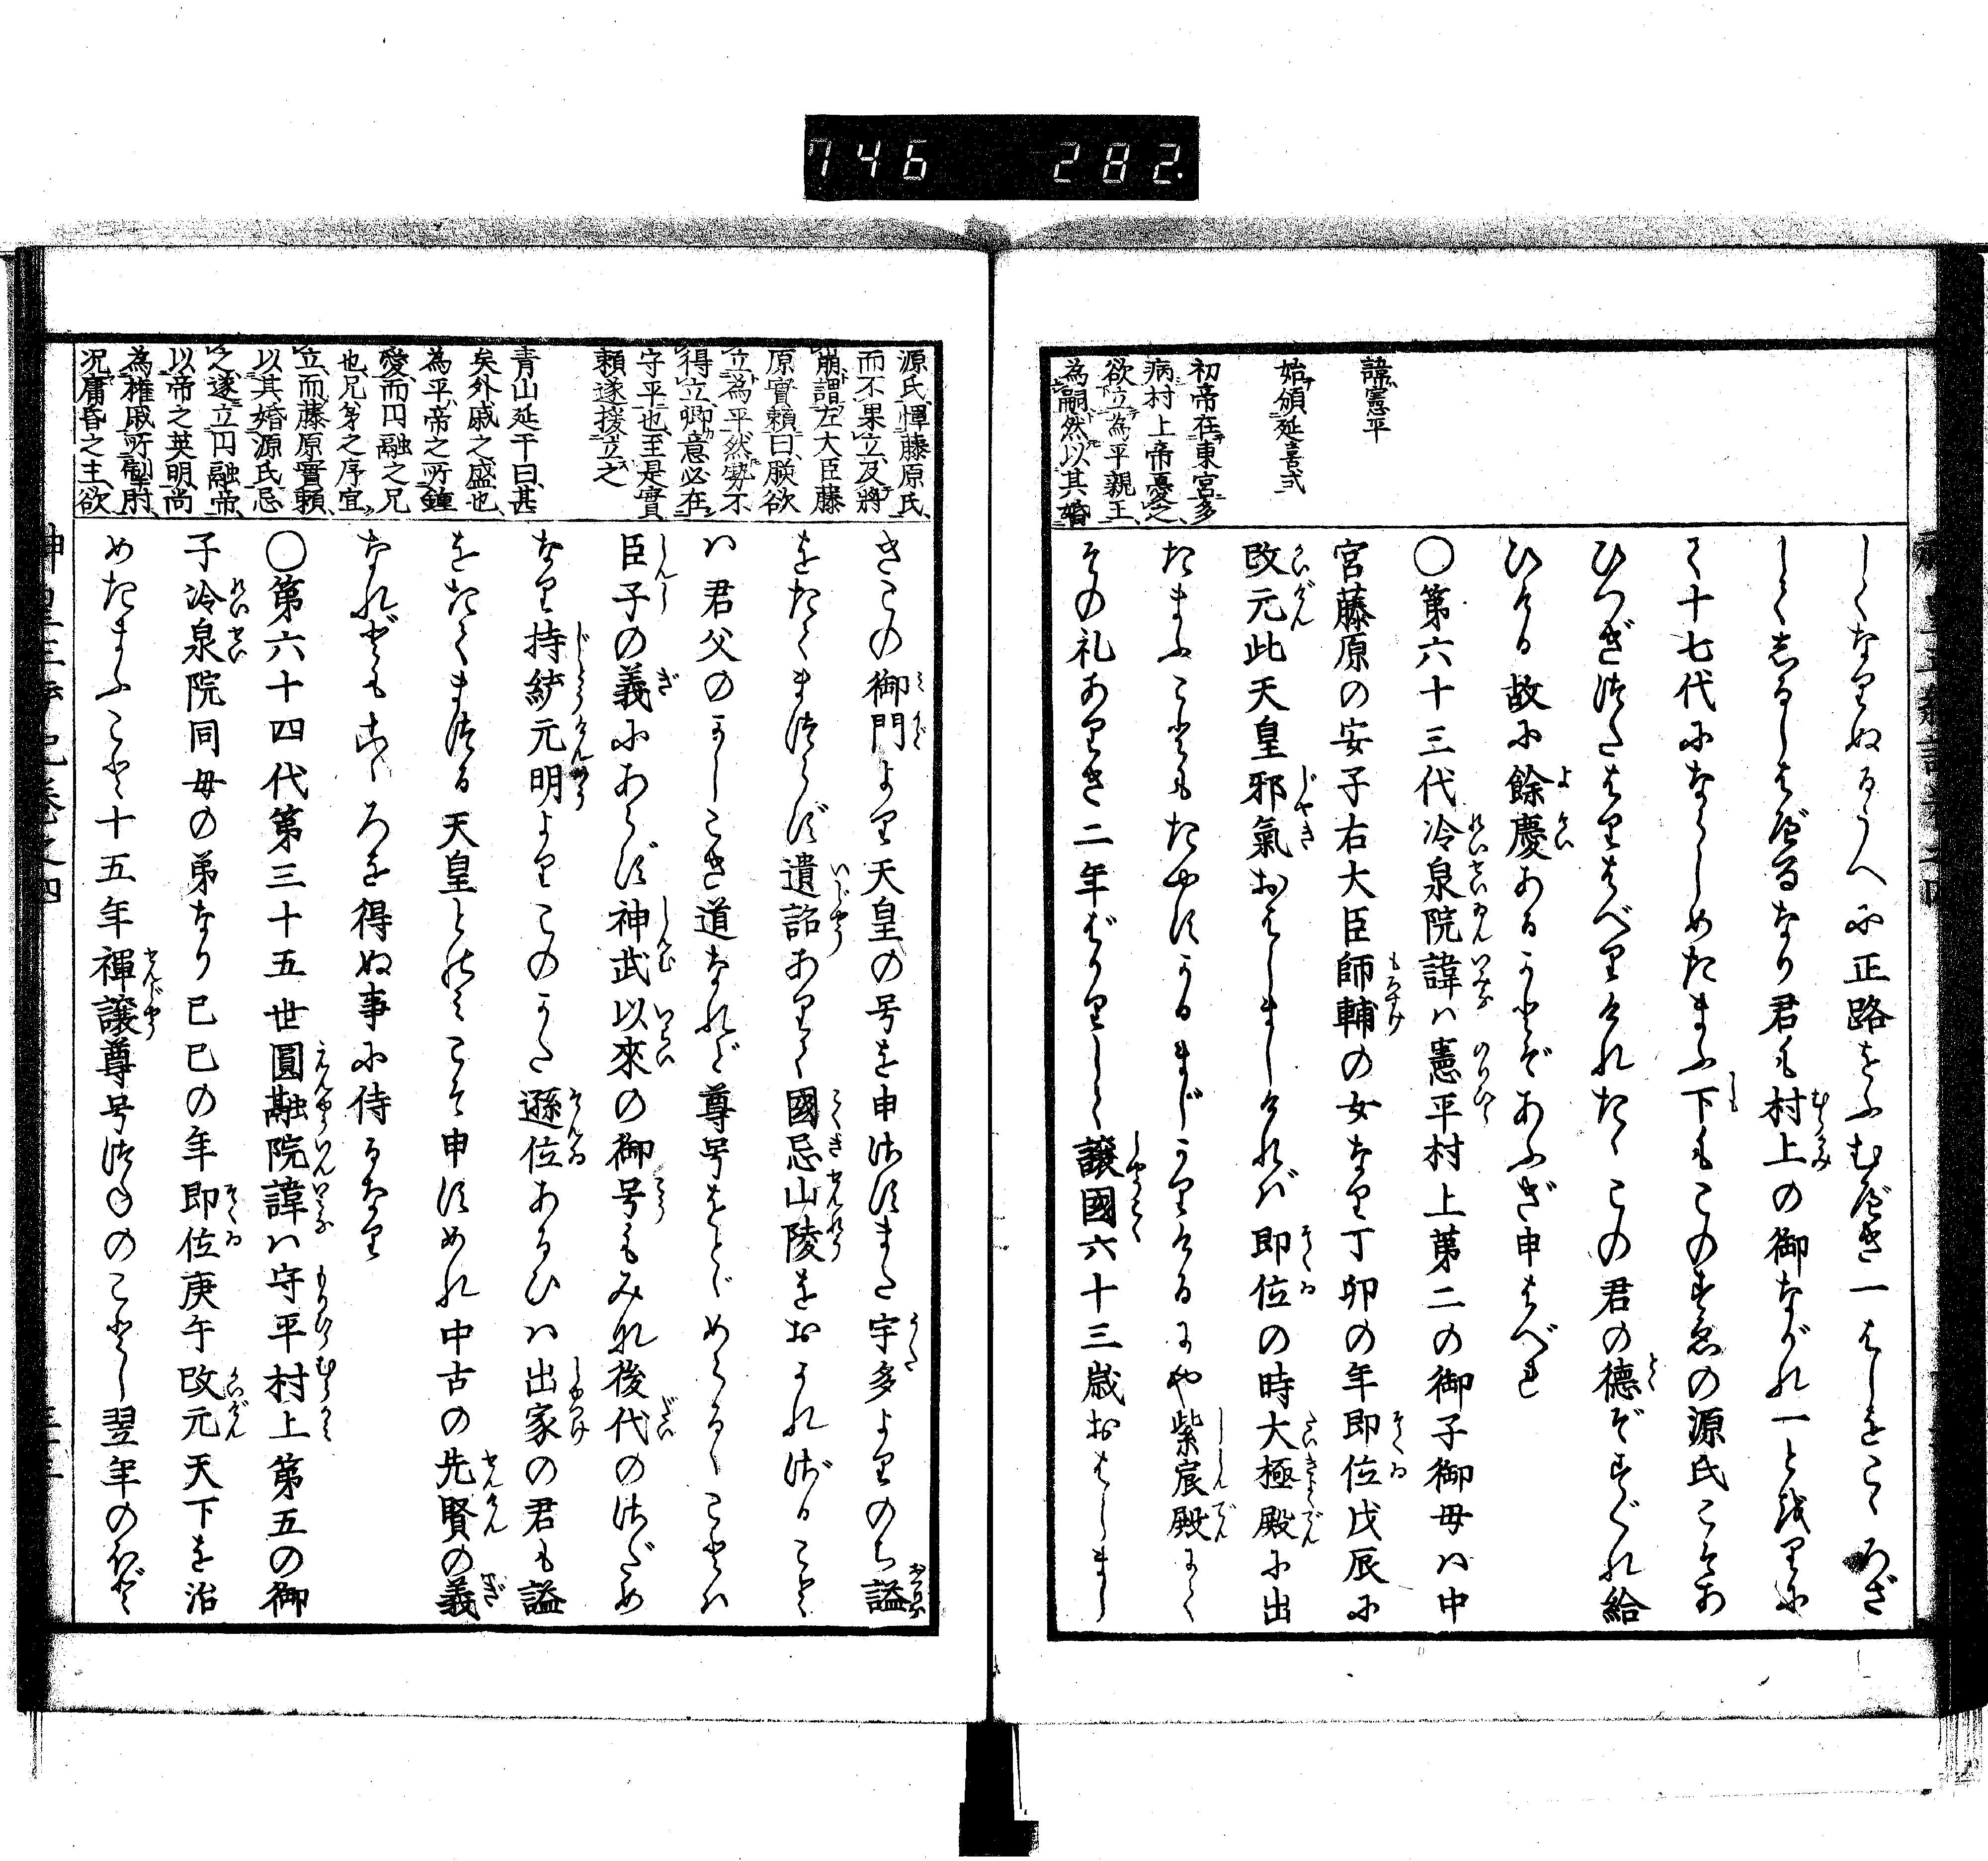 746 282.
諱憲平
始頒延喜式
初帝在東宮多
病村上帝憂之
欲立為平親王
為嗣然以其婚
しくなりぬるうへに正路をふむべき一はしをこゝろざ
してしるしはべるなり君も村上の御ながれ一とほりに
て十七代にならしめたまふ下もこのすゑの源氏こそあ
ひつぎつたはりはべりけれたゝこの君の德ぞすぐれ給
ひける故に餘慶あるかとぞあふぎ申はべれ
〇第六十三代冷泉院諱ハ憲平村上第二の御子御母ハ中
宮藤原の安子右大臣師輔の女なり丁卯の年即位戊辰に
改元此天皇邪氣おはしましければ即位の時大極殿に出
たまふこともたやすかるまじかりけるにや紫宸殿にて
その礼ありき二年ばかりして譲國六十三歳おはしまし
源氏憚藤原氏
而不果立及將
崩謂左大臣藤
原實頼曰朕欲
立為平然勢不
得立卿意必在
守平也至是實
頼遂援立之
青山延于曰甚
矣外戚之盛也
為平帝之所鍾
愛而円融之兄
也兄弟之序宜
立而藤原實頼
以其婚源氏忌
之遂立円融帝
以帝之英明尚
為權戚所掣肘
况庸昏之主欲
きこの御門より天皇の号を申さずまた宇多よりのち諡
をたてまつらず遺詔ありて國忌山陵をおかれざること
ハ君父のかしこき道なれど尊号をとゞめらるゝことハ
臣子の義にあらず神武以來の御号もみな後代のさだめ
なり持統元明よりこのかた遜位あるひハ出家の君も諡
をたてまつる天皇とのみこそ申すめれ中古の先賢の義
なれどもこゝろを得ぬ事に侍るなり
〇第六十四代第三十五世圓融院諱ハ守平村上第五の御
子冷泉院同母の弟なり己巳の年即位庚午改元天下を治
めたまふこと十五年禪譲尊号つねのことし翌年のほど